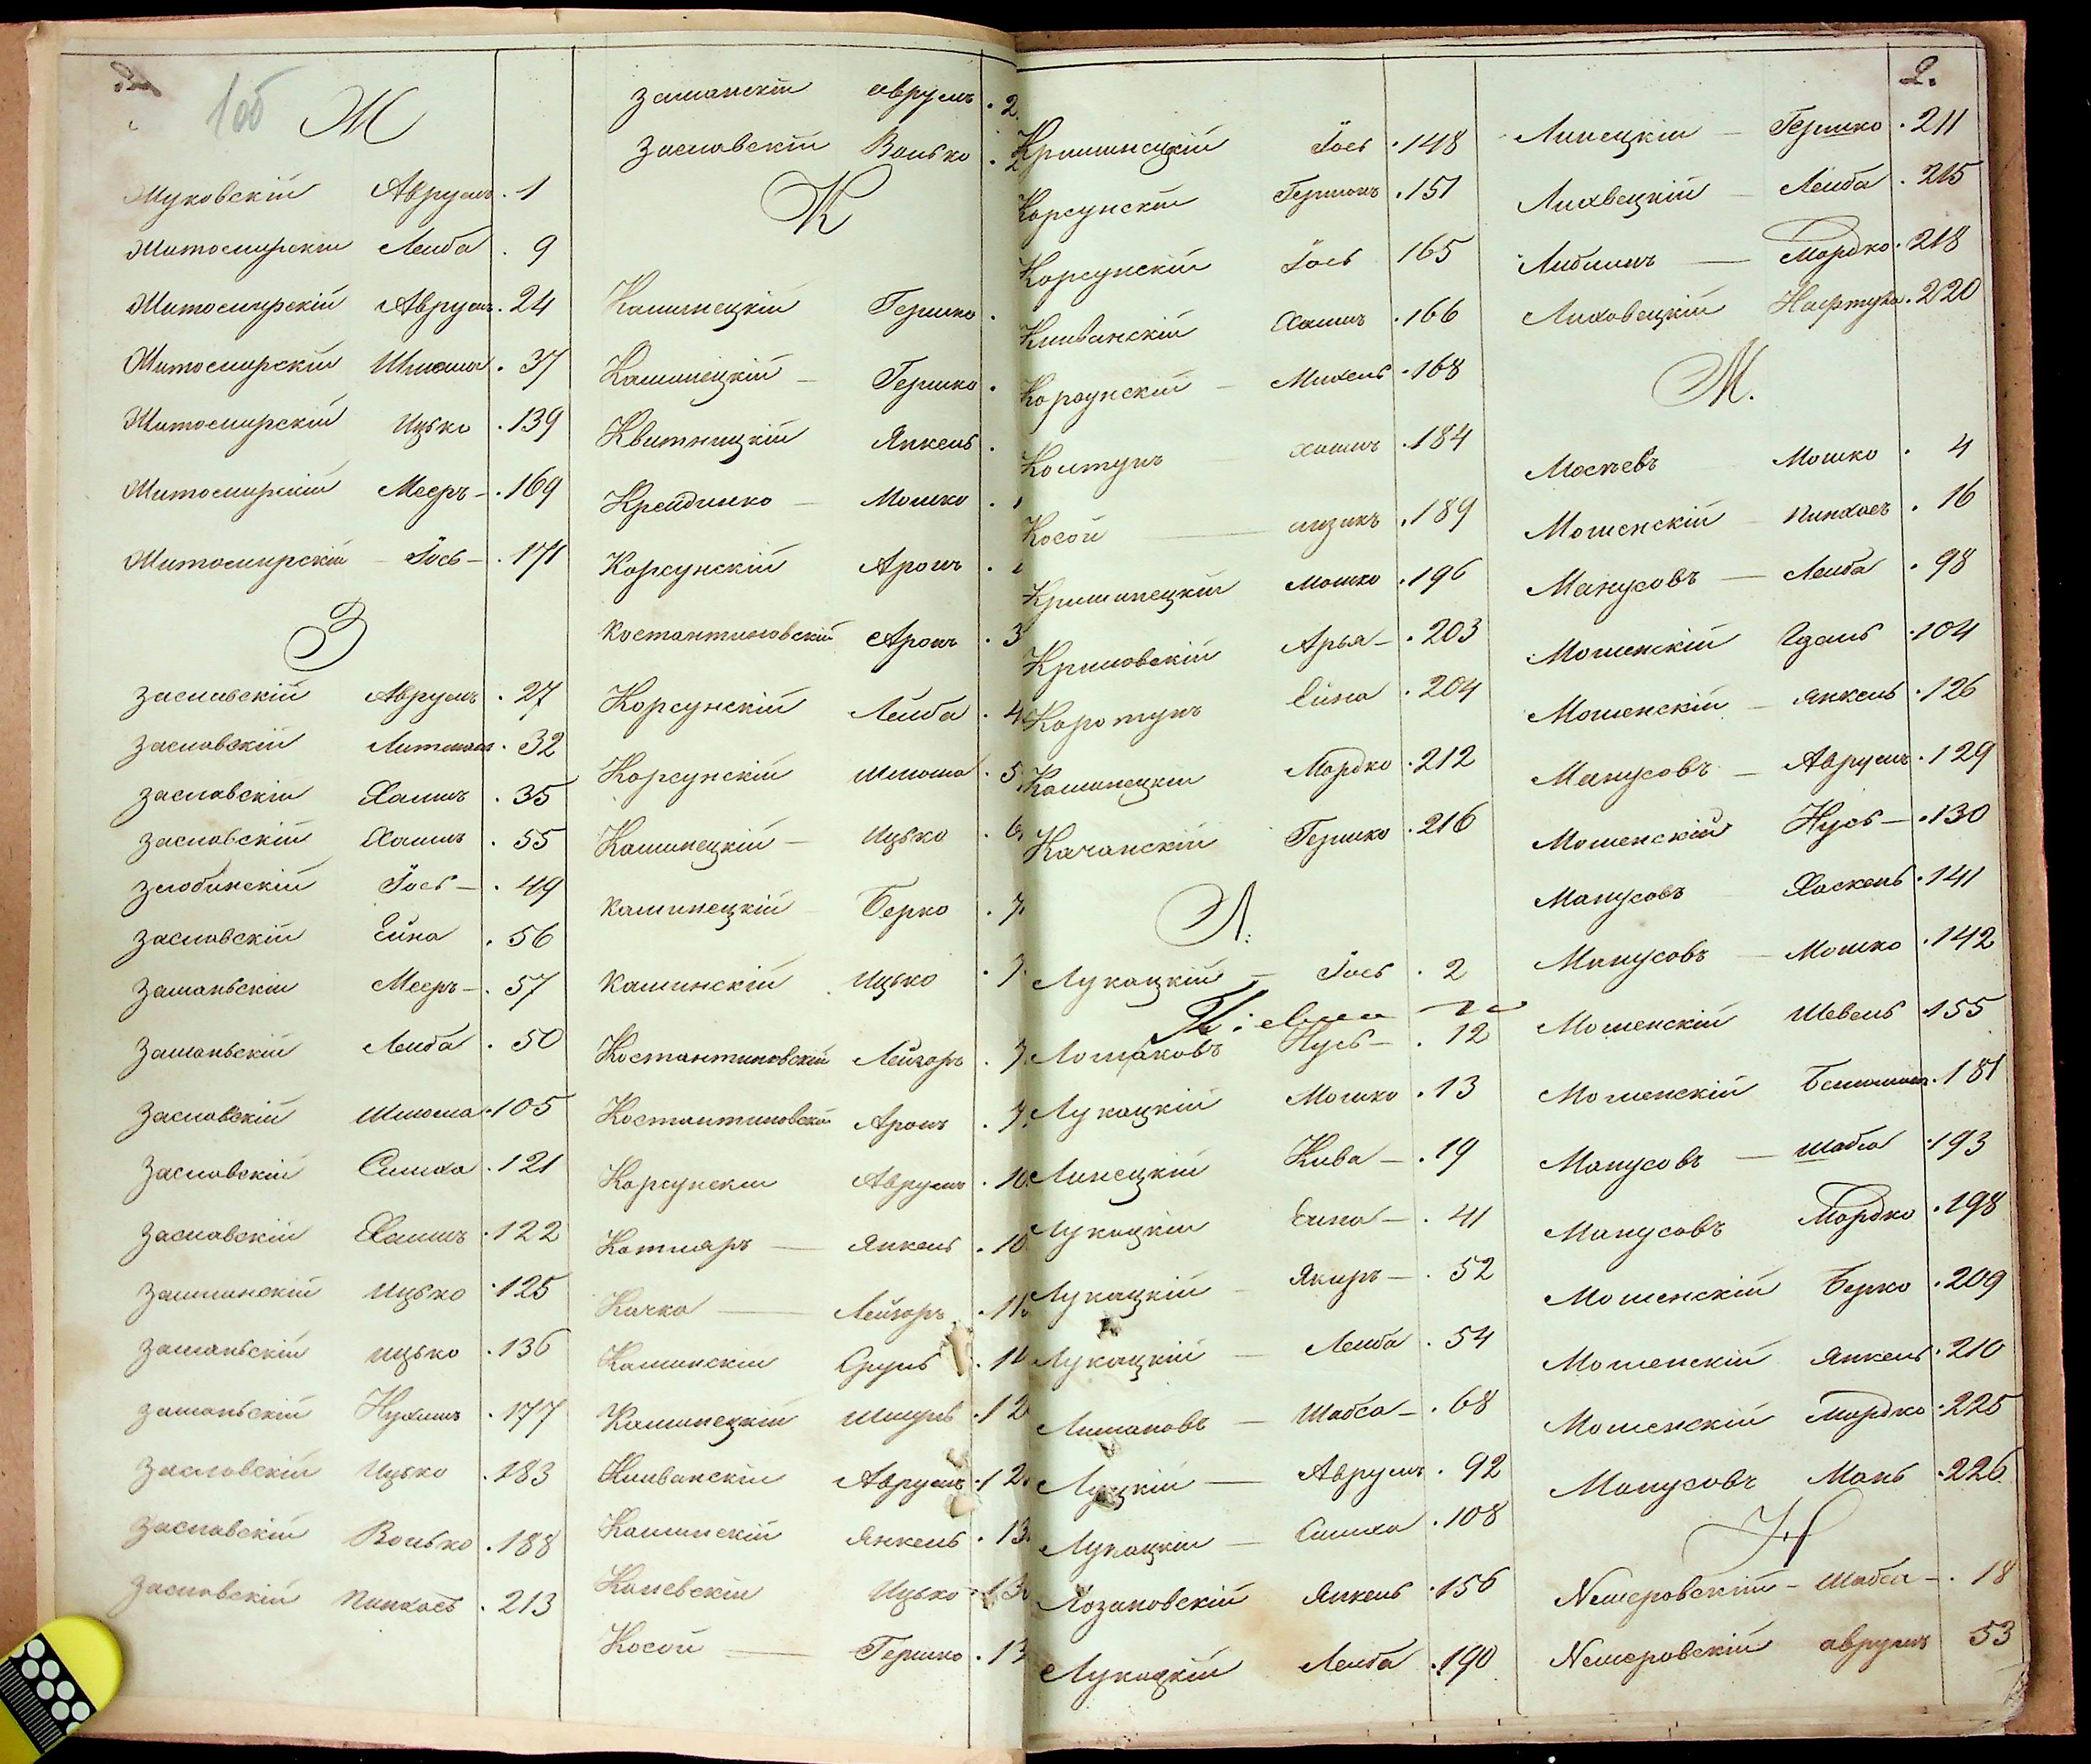 1об
Ж
Жуковскій Аврумъ . 1
Житомирскій Лейба . 9
Житомирскій Аврумъ . 24
Житомирскій Шлиома . 37
Житомирскій Ицько . 139
Житомирскій Мееръ - . 169
Житомирскій - Іось - . 171
З
Заславскій Аврумъ . 27
Заславскій Литманъ . 32
Заславскій Хаимъ . 35
Заславскій Хаимъ . 55
Злобинскій Іось - . 49
Заславскій Ейна . 56
Заманьскій Мееръ - . 57
Замоньскій Лейба . 50
Заславскій Шлиома . 105
Заславскій Симха . 121
Заславскій Хаимъ . 122
Ицько . 125
Заманьскій Ицько . 136
Замоньскій Нухимъ . 177
Заславскій Ицько . 183
Заславскій Волько . 188
Заславскій Пинхасъ . 213
Заманскій Аврумъ . 2
Заславскій Волько . 2
К
Каминецкій Гершко .
Каминецкій - Гершко .
Квитницкій Янкель .
Крейдинко - Мошко .
Корсунскій Аронъ .
Костантиновскій Аронъ . 3
Корсунскій Лейба . 4
Корсунскій Шлиома . 5
Каминецкій - Ицько . 6
Каминецкій - Берко . 7
Каминскій Ицько . 7
Костантиновскій Лейзоръ . 7
Костантиновскій Аронъ . 7
Корсунскій Аврумъ . 10
Котляръ - Янкель . 10
Качка - Лейзоръ . 11
Каминскій Сруль . 11
Каминецкій Шмуль . 12
Клеванскій Аврумъ . 12
Каминскій Янкель . 13
Каневскій Ицько . 13
Косой - Гершко . 13
2.
Криминецкій Іось . 148
Корсунскій Гершонъ . 151
Корсунскій Іось 165
Клеванскій Хаимъ . 166
Корсунскій - Михель . 168
Колтунъ Хаимъ . 184
Косой - Айзикъ . 189
Криминецкій Мошко . 196
Крымовскій Арья - . 203
Коротунъ Ейна . 204
Каминецкій Мордко . 212
Качанскій Гершко . 216
Л.
Лукацкій - Іось . 2
Лошаковъ Нусь - . 12
Лукацкій Мошко . 13
Липецкій Кива - . 19
Лукацкій Ейна - . 41
Лукацкій - Якиръ - . 52
Лукацкій - Лейба . 54
Лимановъ - Шабса - . 68
Луцкій - Аврумъ . 92
Лукацкій - Симха . 108
Лозановскій Янкель . 156
Лукацкій Лейба . 190
Липецкій - Гершко . 211
Лиавецкій - Лейба . 215
Либманъ - Мордко . 218
Лиховецкій Нафтула . 220
М.
Мосиевъ Мошко . 4
Мошенскій Пинхасъ . 16
Манусовъ - Лейба . 98
Мошенскій Гдаль . 104
Мошенскій - Янкель . 126
Манусовъ - Аврумъ . 129
Мошенскій Нусь - . 130
Манусовъ Хаскель . 141
Манусовъ - Мошко . 142
Мошенскій Шевель . 155
Мошенскій Беньоминъ . 181
Манусовъ - Шабса . 193
Манусовъ Мордко . 198
Мошенскій Берко . 209
Мошенскій Янкель . 210
Мошенскій Мордко . 225
Манусовъ Мань . 226
Н
Немеровскій - Шабса - . 18
Немеровскій Аврумъ 53